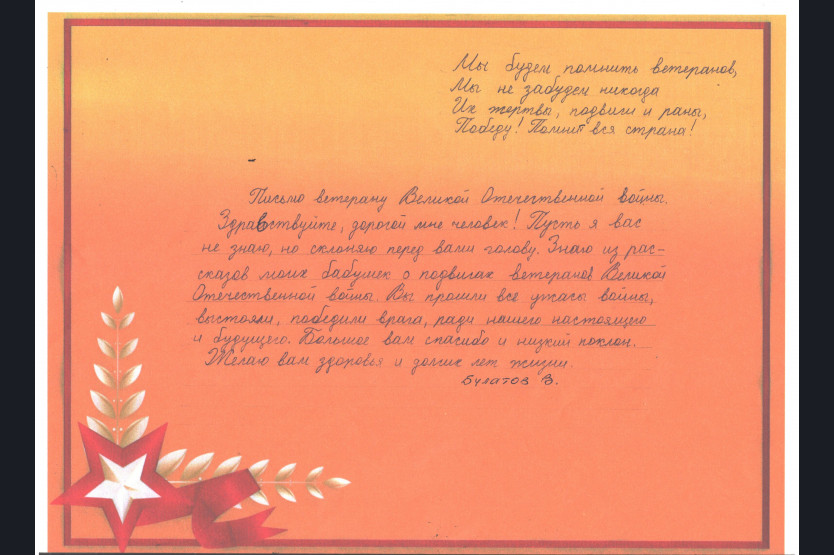 Мы будем помнить ветеранов,
Мы не забудем никогда
Их жертвы, подвиги и раны,
Победу! Помнит вся страна!
Письмо ветерану Великой Отечественной войны.
Здравствуйте, дорогой мне человек! Пусть я вас
не знаю, но склоняю перед вами голову. Знаю из рас-
сказов моих бабушек о подвигах ветеранов Великой
Отечественной войны. Вы прошли все ужасы войны,
выстояли, победили врага, ради нашего настоящего
и будущего. Большое вам спасибо и низкий поклон.
Желаю вам здоровья и долгих лет жизни.
Булатов В.